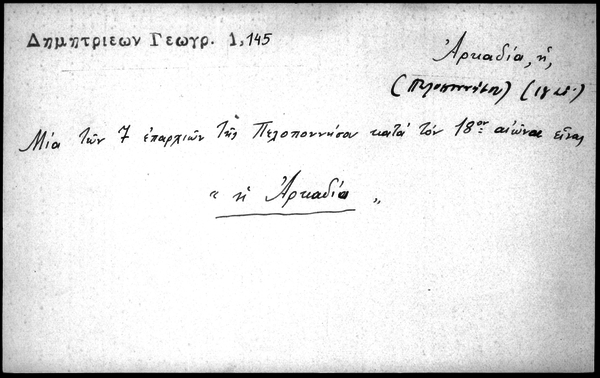 Δημητριεων Γεωγρ. 1,145
Ἀρκαδία, ἡ,
(Πελοπόννησου) (18 αἰ.)
Μία τῶν 7 ἐπαρχιῶν τῆς Πελοποννήσου κατά τόν 18ον αἰώνα εἶναι
« ἡ Ἀρκαδία „